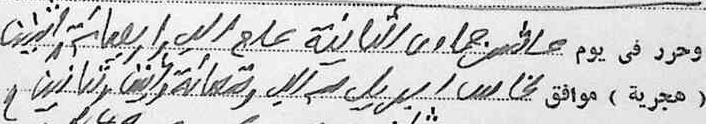 وحرر فى يوم عاشر جمادى الثانية عام الف اربعمائة اثنين
( هجرية ) موافق خامس ابريل سنة الف وتسعمائة واثنين وثمانين م